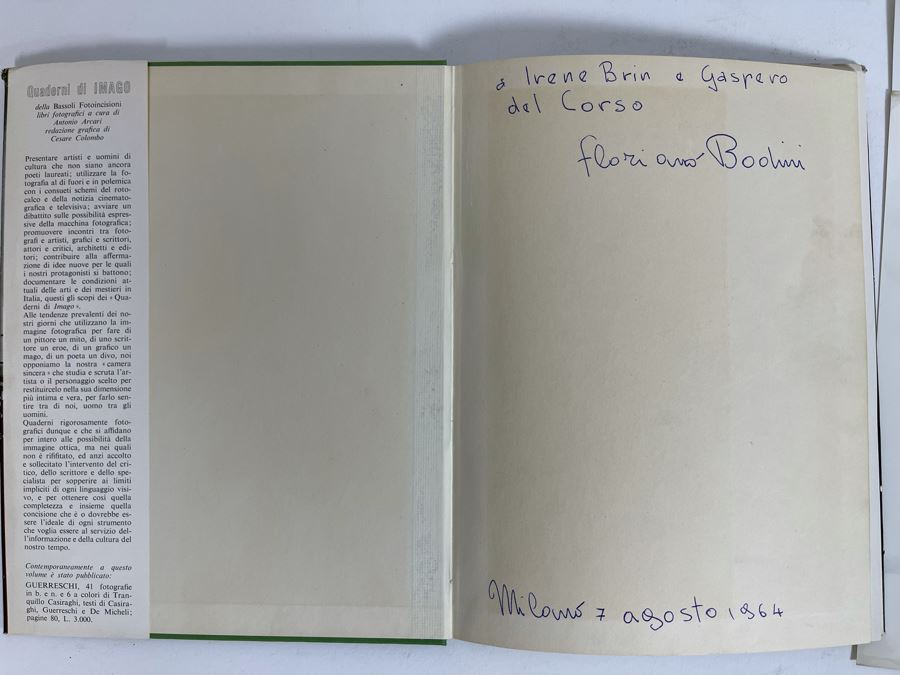 Quaderni di IMAGO
della Bassoli Fotoincisioni
libri fotografici a cura di
Antonio Arcari
redazione grafica di
Cesare Colombo
Presentare artisti e uomini di
cultura che non siano ancora
poeti laureati; utilizzare la fo-
tografia al di fuori e in polemica
con i consueti schemi del roto-
calco e della notizia cinemato-
grafica e televisiva; avviare un
dibattito sulle possibilità espres-
sive della macchina fotografica;
promuovere incontri tra foto-
grafi e artisti, grafici e scrittori,
attori e critici, architetti e edi-
tori; contribuire alla afferma-
zione di idee nuove per le quali
i nostri protagonisti si battono;
documentare le condizioni at-
tuali delle arti e dei mestieri in
Italia, questi gli scopi dei «Qua-
derni di Imago».
Alle tendenze prevalenti dei no-
stri giorni che utilizzano la im-
magine fotografica per fare di
un pittore un mito, di uno scrit-
tore un eroe, di un grafico un
mago, di un poeta un divo, noi
opponiamo la nostra «camera
sincera» che studia e scruta l'ar-
tista o il personaggio scelto per
restituircelo nella sua dimensione
più intima e vera, per farlo sen-
tire tra di noi, uomo tra gli
uomini.
Quaderni rigorosamente foto-
grafici dunque e che si affidano
per intero alle possibilità della
immagine ottica, ma nei quali
non è rififitato, ed anzi accolto
e sollecitato l'intervento del cri-
tico, dello scrittore e dello spe-
cialista per sopperire ai limiti
impliciti di ogni linguaggio visi-
vo, e per ottenere così quella
completezza e insieme quella
concisione che è o dovrebbe es-
sere l'ideale di ogni strumento
che voglia essere al servizio del-
l'informazione e della cultura del
nostro tempo.
Contemporaneamente a questo
volume è stato pubblicato:
GUERRESCHI, 41 fotografie
in b. e n. e 6 a colori di Tran-
quillo Casiraghi, testi di Casira-
ghi, Guerreschi e De Micheli;
pagine 80, L. 3.000.
a Irene Brin e Gaspero
del Corso
floriano Bodini
Milano 7 agosto 1964